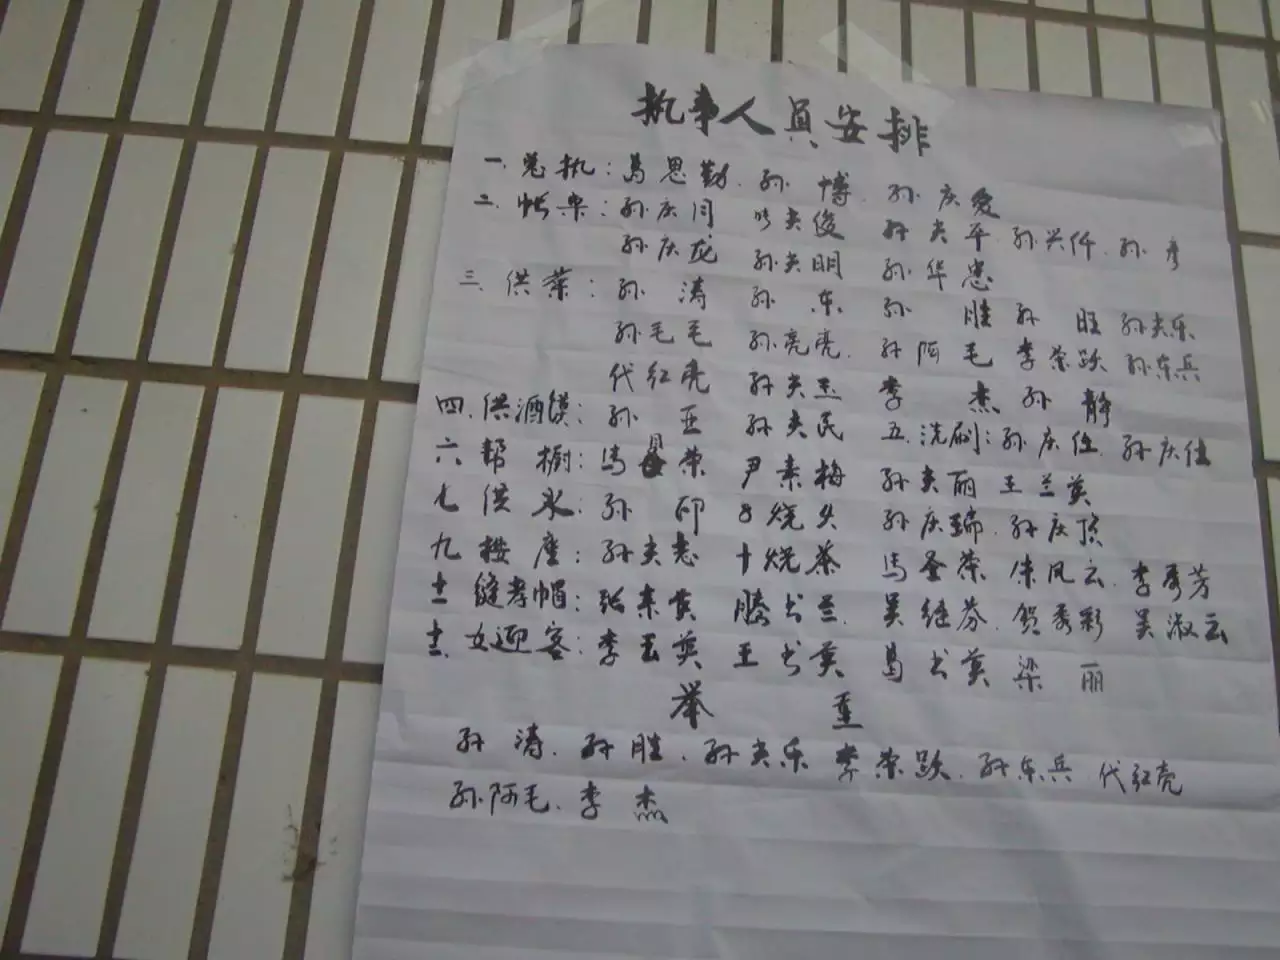 执事人员安排
一、总执：葛思勤、孙 博、孙庆爱
二、帐桌：孙庆闩 孙夫俊 孙夫平、孙兴仟、孙
孙庆龙 孙夫明 孙华忠
三、供菜：孙 涛 孙 东 孙 胜 孙 旺 孙夫乐
孙毛毛 孙亮亮、孙阿毛 李荣跃 孙东兵
代红亮 孙夫玉 李 杰 孙 静
四、供酒馍：孙 亚 孙夫民 五、洗刷：孙庆仕、孙庆仕
六 帮 橱：马 荣 尹素梅 孙夫丽 王兰英
七 供 水：孙 印 8烧火 孙庆瑞、孙庆顶
九 按 座：孙夫志 十烧茶 马圣荣 朱凤云、李秀芳
十一 缝孝帽：张素英 滕书兰、吴继芬、贺秀彩 吴淑云
十二 女迎客：李玉英 王书英 葛书英 梁 丽
举 重
孙 涛、孙 胜、孙夫乐 李荣跃、孙东兵 代红亮
孙阿毛、李 杰